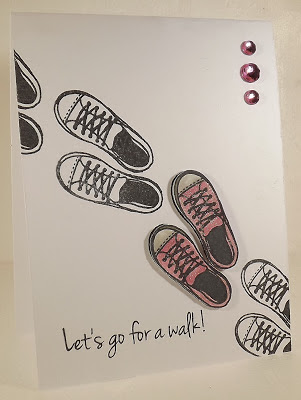 Let's go for a walk!